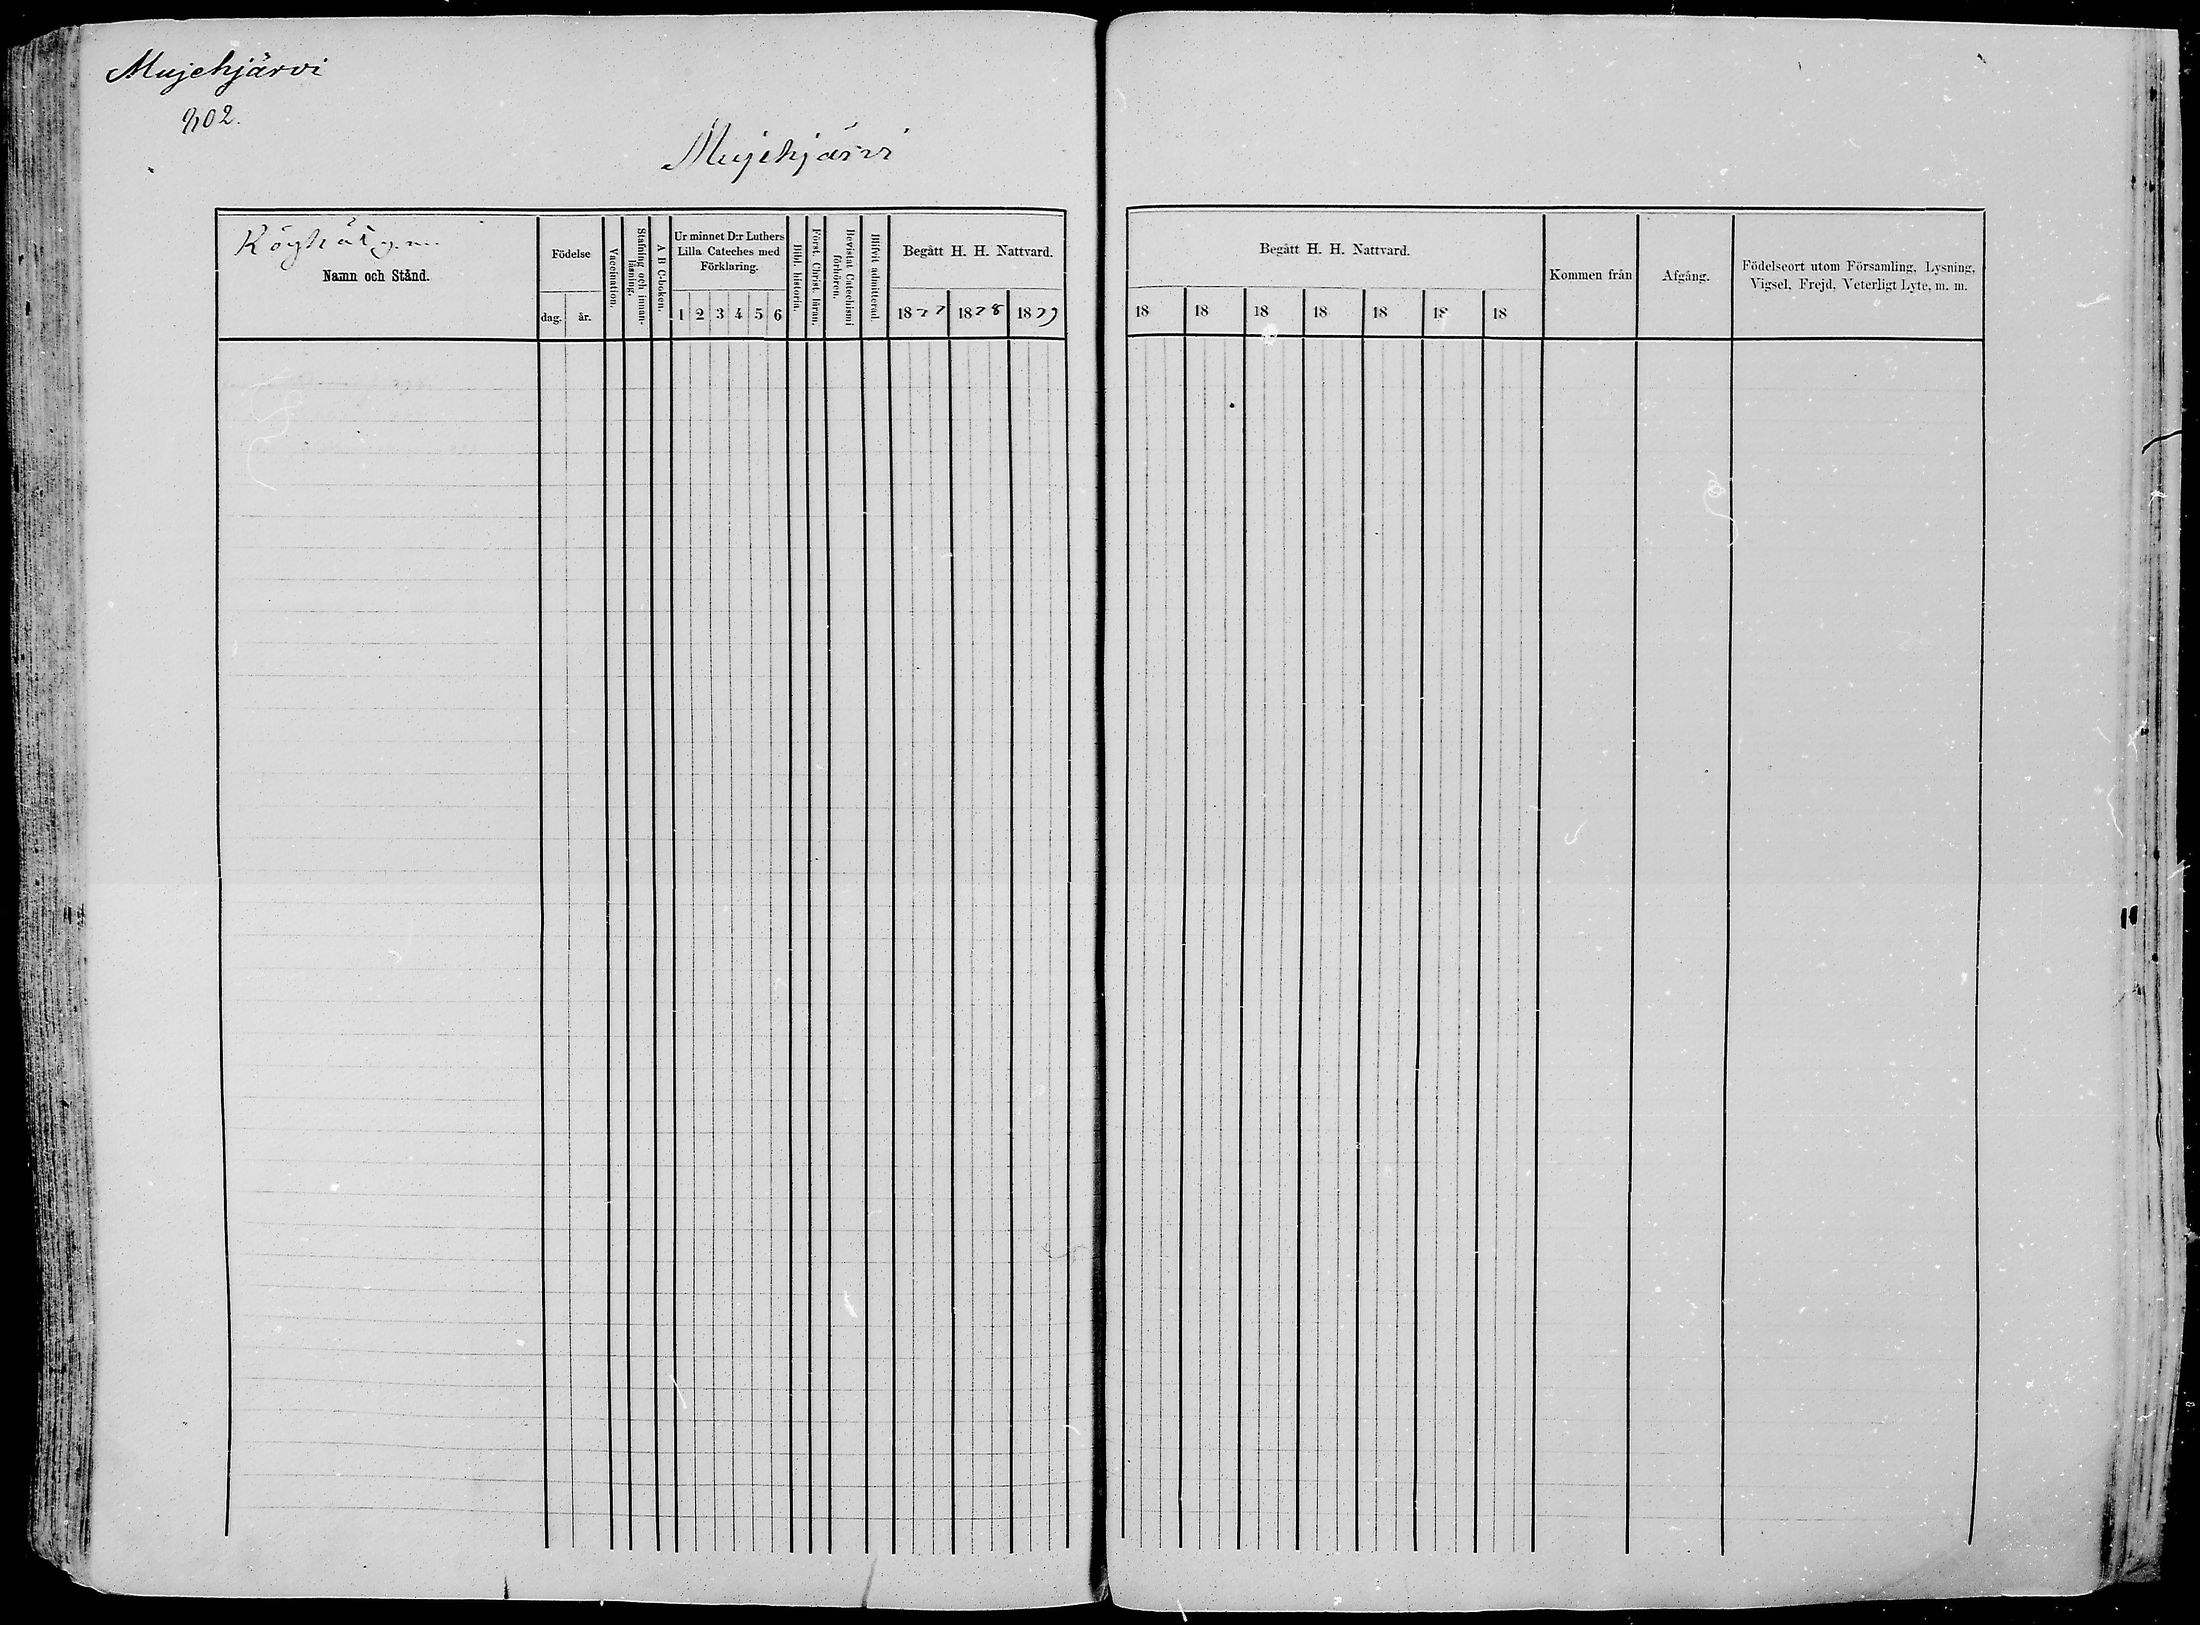 Mujehjärvi
802.
Mujehjärvi
Namn och Stånd.
Födelse
dag. år.
Vaccination.
Stafning och innan-
läsning.
A B C-boken.
Ur minnet D:r Luthers
Lilla Cateches med
Förklaring.
1 2 3 4 5 6
Bibl. historia.
Först. Christ. läran.
Bevistat Catechismi
förhören.
Blifvit admitterad.
Begått H. H. Nattvard.
1877 1878 1879
Begått H. H. Nattvard.
18 18 18 18 18 18 18
Kommen från
Afgång.
Födelseort utom Församling, Lysning,
Vigsel, Frejd, Veterligt Lyte, m. m.